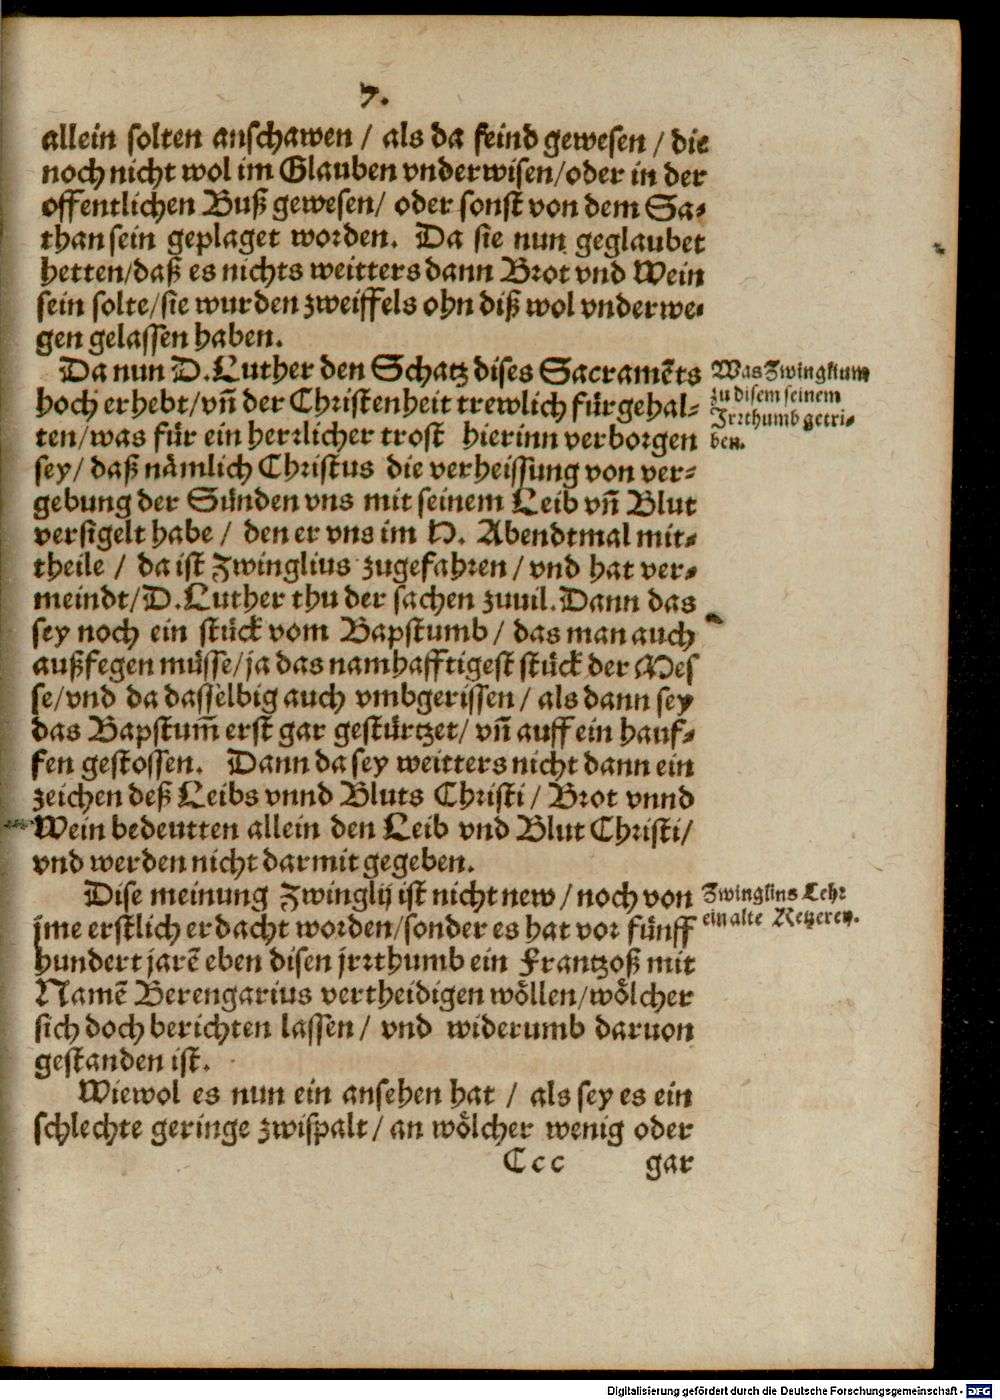 7.
allein solten anschawen / als da seind gewesen / die
noch nicht wol im Glauben vnderwisen/oder in der
offentlichen Buß gewesen/ oder sonst von dem Sa-
than sein geplaget worden. Da sie nun geglaubet
hetten/daß es nichts weitters dann Brot vnd Wein
sein solte/sie wurden zweiffels ohn diß wol vnderwe-
gen gelassen haben.
Da nun D. Luther den Schatz dises Sacramẽts
hoch erhebt/vñ der Christenheit trewlich fürgehal-
ten/was für ein herrlicher trost hierinn verborgen
sey/ daß nämlich Christus die verheissung von ver-
gebung der Sünden vns mit seinem Leib vñ Blut
versigelt habe / den er vns im H. Abendtmal mit-
theile / da ist Zwinglius zugefahren/ vnd hat ver-
meindt/D. Luther thu der sachen zuuil. Dann das
sey noch ein stück vom Bapstumb/ das man auch
außfegen müsse/ja das namhafftigest stück der Mes
se/vnd da dasselbig auch vmbgerissen/ als dann sey
das Bapstum̃ erst gar gestürtzet/ vñ auff ein hauf-
fen gestossen. Dann da sey weitters nicht dann ein
zeichen deß Leibs vnnd Bluts Christi / Brot vnnd
Wein bedeutten allein den Leib vnd Blut Christi/
vnd werden nicht darmit gegeben.
Dise meinung Zwinglij ist nicht new / noch von
jme erstlich erdacht worden/sonder es hat vor fünff
hundert jarẽ eben disen jrrthumb ein Frantzoß mit
Namẽ Berengarius vertheidigen wöllen/wölcher
sich doch berichten lassen/ vnd widerumb daruon
gestanden ist.
Wiewol es nun ein ansehen hat / als sey es ein
schlechte geringe zwispalt/ an wölcher wenig oder
Ccc gar
Was Zwinglium
zu disem seinem
Jrrthumb getri-
ben.
Zwinglins Lehr
ein alte Ketzerey.
Digitalisierung gefördert durch die Deutsche Forschungsgemeinschaft - DFG